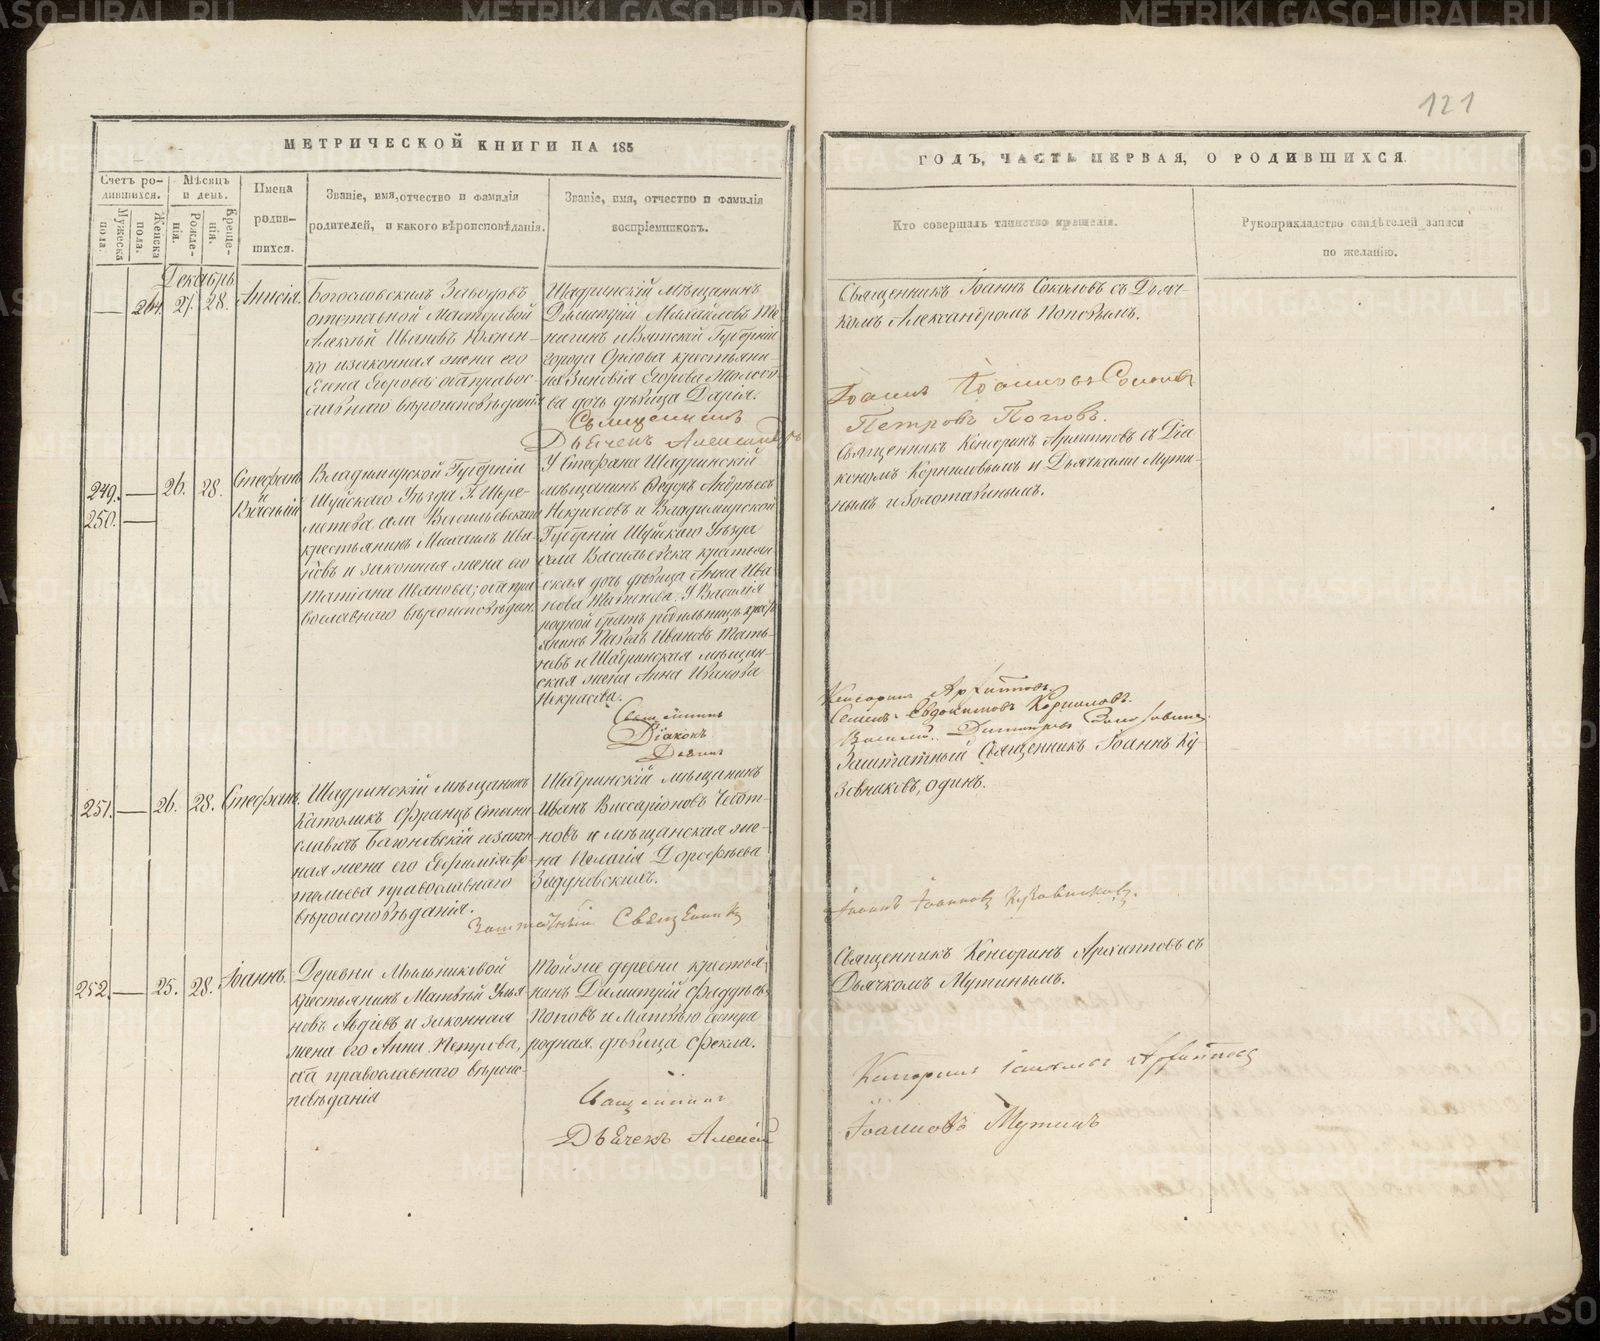 METRIKI.GASO-URAL.RU
121
МЕТРИЧЕСКОЙ КНИГИ НА 185
ГОДЪ, ЧАСТЬ ПЕРВАЯ, О РОДИВШИХСЯ.
Счетъ ро-
дившихся.
Мужеска
пола.
Женска
пола.
Мѣсяцъ
и день.
Рожде-
нія.
Креще-
нія.
Имена
родив-
шихся.
Званіе, имя, отчество и фамилія
родителей, и какого вѣроисповѣданія.
Званіе, имя, отчество и фамилія
воспріемниковъ.
Кто совершалъ таинство крещенія.
Рукоприкладство свидѣтелей записи
по желанію.
Декабрь
264. 27. 28. Анисія.
Богословскихъ Заводовъ
отставной Мастеровой
Алексѣй
и законная жена его
Елена Егорова; оба правос-
лавнаго вѣроисповѣданія
Шадринскій Мѣщанинъ
Димитрій Михайловъ
и Вятской Губерніи
города Орлова крестьяни-
на Зиновія Егорова
ва дочь дѣвица Дарія.
Священникъ
Дьячекъ Александръ
Священникъ Іоаннъ Соколовъ съ Дьяч-
комъ Александромъ Поповымъ.
Іоаннъ Іоанновъ Соколовъ
Петровъ Поповъ.
249. 26. 28. Стефанъ
и
250. Василій
Владимирской Губерніи
Шуйскаго Уѣзда Г. Шере-
метева села Васильевскаго
крестьянинъ Михаилъ Ива-
новъ и законная жена его
Татіана Иванова; оба пра-
вославнаго вѣроисповѣдан.
У Стефана Шадринскій
мѣщанинъ Ѳедоръ Андреевъ
Некрасовъ и Владимирской
Губерніи Шуйскаго Уѣзда
села Васильевска крестьян
ская дочь дѣвица Анна Ива
нова У Василія
родной братъ родильницы крест
янинъ Павелъ Ивановъ
и Шадринская мѣщан-
ская жена Анна Иванова
Некрасова.
Священникъ
Діаконъ
Священникъ Кенсоринъ Архипповъ съ Діа
кономъ Корниловымъ и Дьячками Мути-
нымъ и Золотавинымъ.
Кенсоринъ Архипповъ
Семенъ Евдокимовъ Корниловъ.
Василій Димитріевъ Золотавинъ
251. 26. 28. Стефанъ.
Шадринскій мѣщанинъ
Католикъ Францъ Стани
славичъ и закон
ная жена его Евфимія
православнаго
вѣроисповѣданія.
Шадринскій мѣщанинъ
Иванъ Виссаріоновъ
новъ и мѣщанская же-
на Пелагія Дорофеева
Заштатный Священникъ
Заштатный Священникъ Іоаннъ Ку
зовниковъ, одинъ.
Іоаннъ Іоанновъ Кузовниковъ.
252. 25. 28. Іоаннъ.
Деревни Мыльниковой
крестьянинъ Матвѣй Улья
новъ Авдѣевъ и законная
жена его Анна Петрова,
оба православнаго вѣроис-
повѣданія
Тойже деревни крестья
нинъ Димитрій Фаддѣевъ
Поповъ и Матвѣю сестра
родная дѣвица Фекла.
Священникъ
Дьячекъ Алексѣй
Священникъ Кенсоринъ Архипповъ съ
Дьячкомъ Мутинымъ.
Кенсоринъ Архипповъ
Іоанновъ Мутинъ